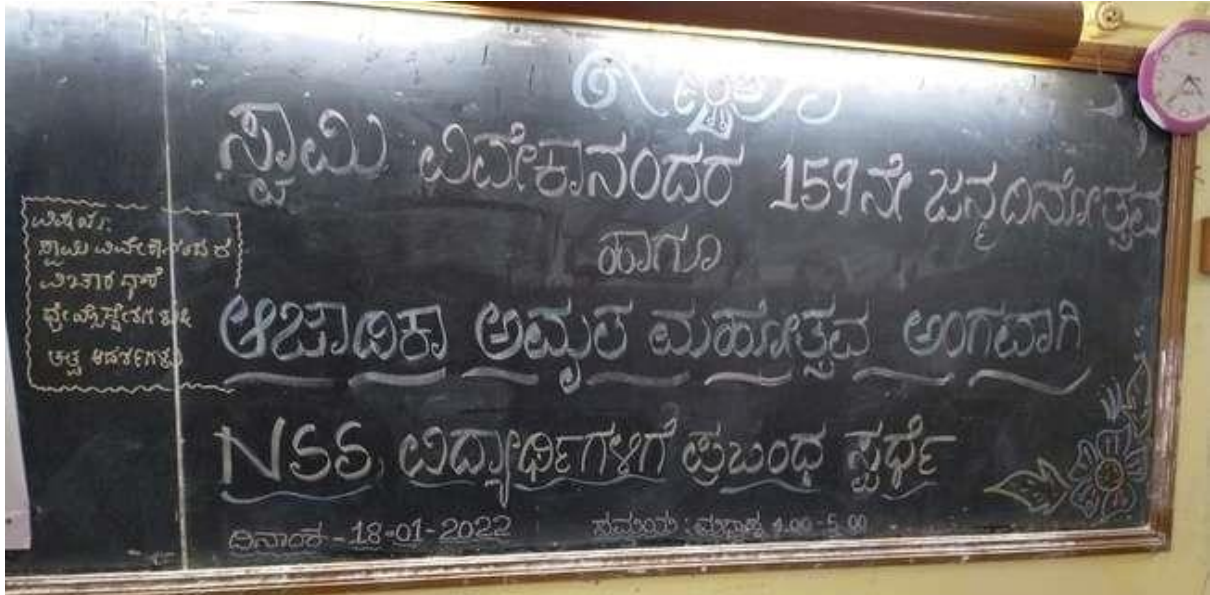 ಸ್ವಾಮಿ ವಿವೇಕಾನಂದರ 159ನೇ ಜನ್ಮದಿನೋತ್ಸವ
ಹಾಗೂ
ಆಜಾದಿಕಾ ಅಮೃತ ಮಹೋತ್ಸವ ಅಂಗವಾಗಿ
NSS ವಿದ್ಯಾರ್ಥಿಗಳಿಗೆ ಪ್ರಬಂಧ ಸ್ಪರ್ಧೆ
ದಿನಾಂಕ - 18-01-2022 ಸಮಯ : ಮಧ್ಯಾಹ್ನ 4.00-5.00
ವಿಷಯ:
ಸ್ವಾಮಿ ವಿವೇಕಾನಂದರ
ವಿಚಾರಧಾರೆ
ತತ್ವ ಆದರ್ಶಗಳು